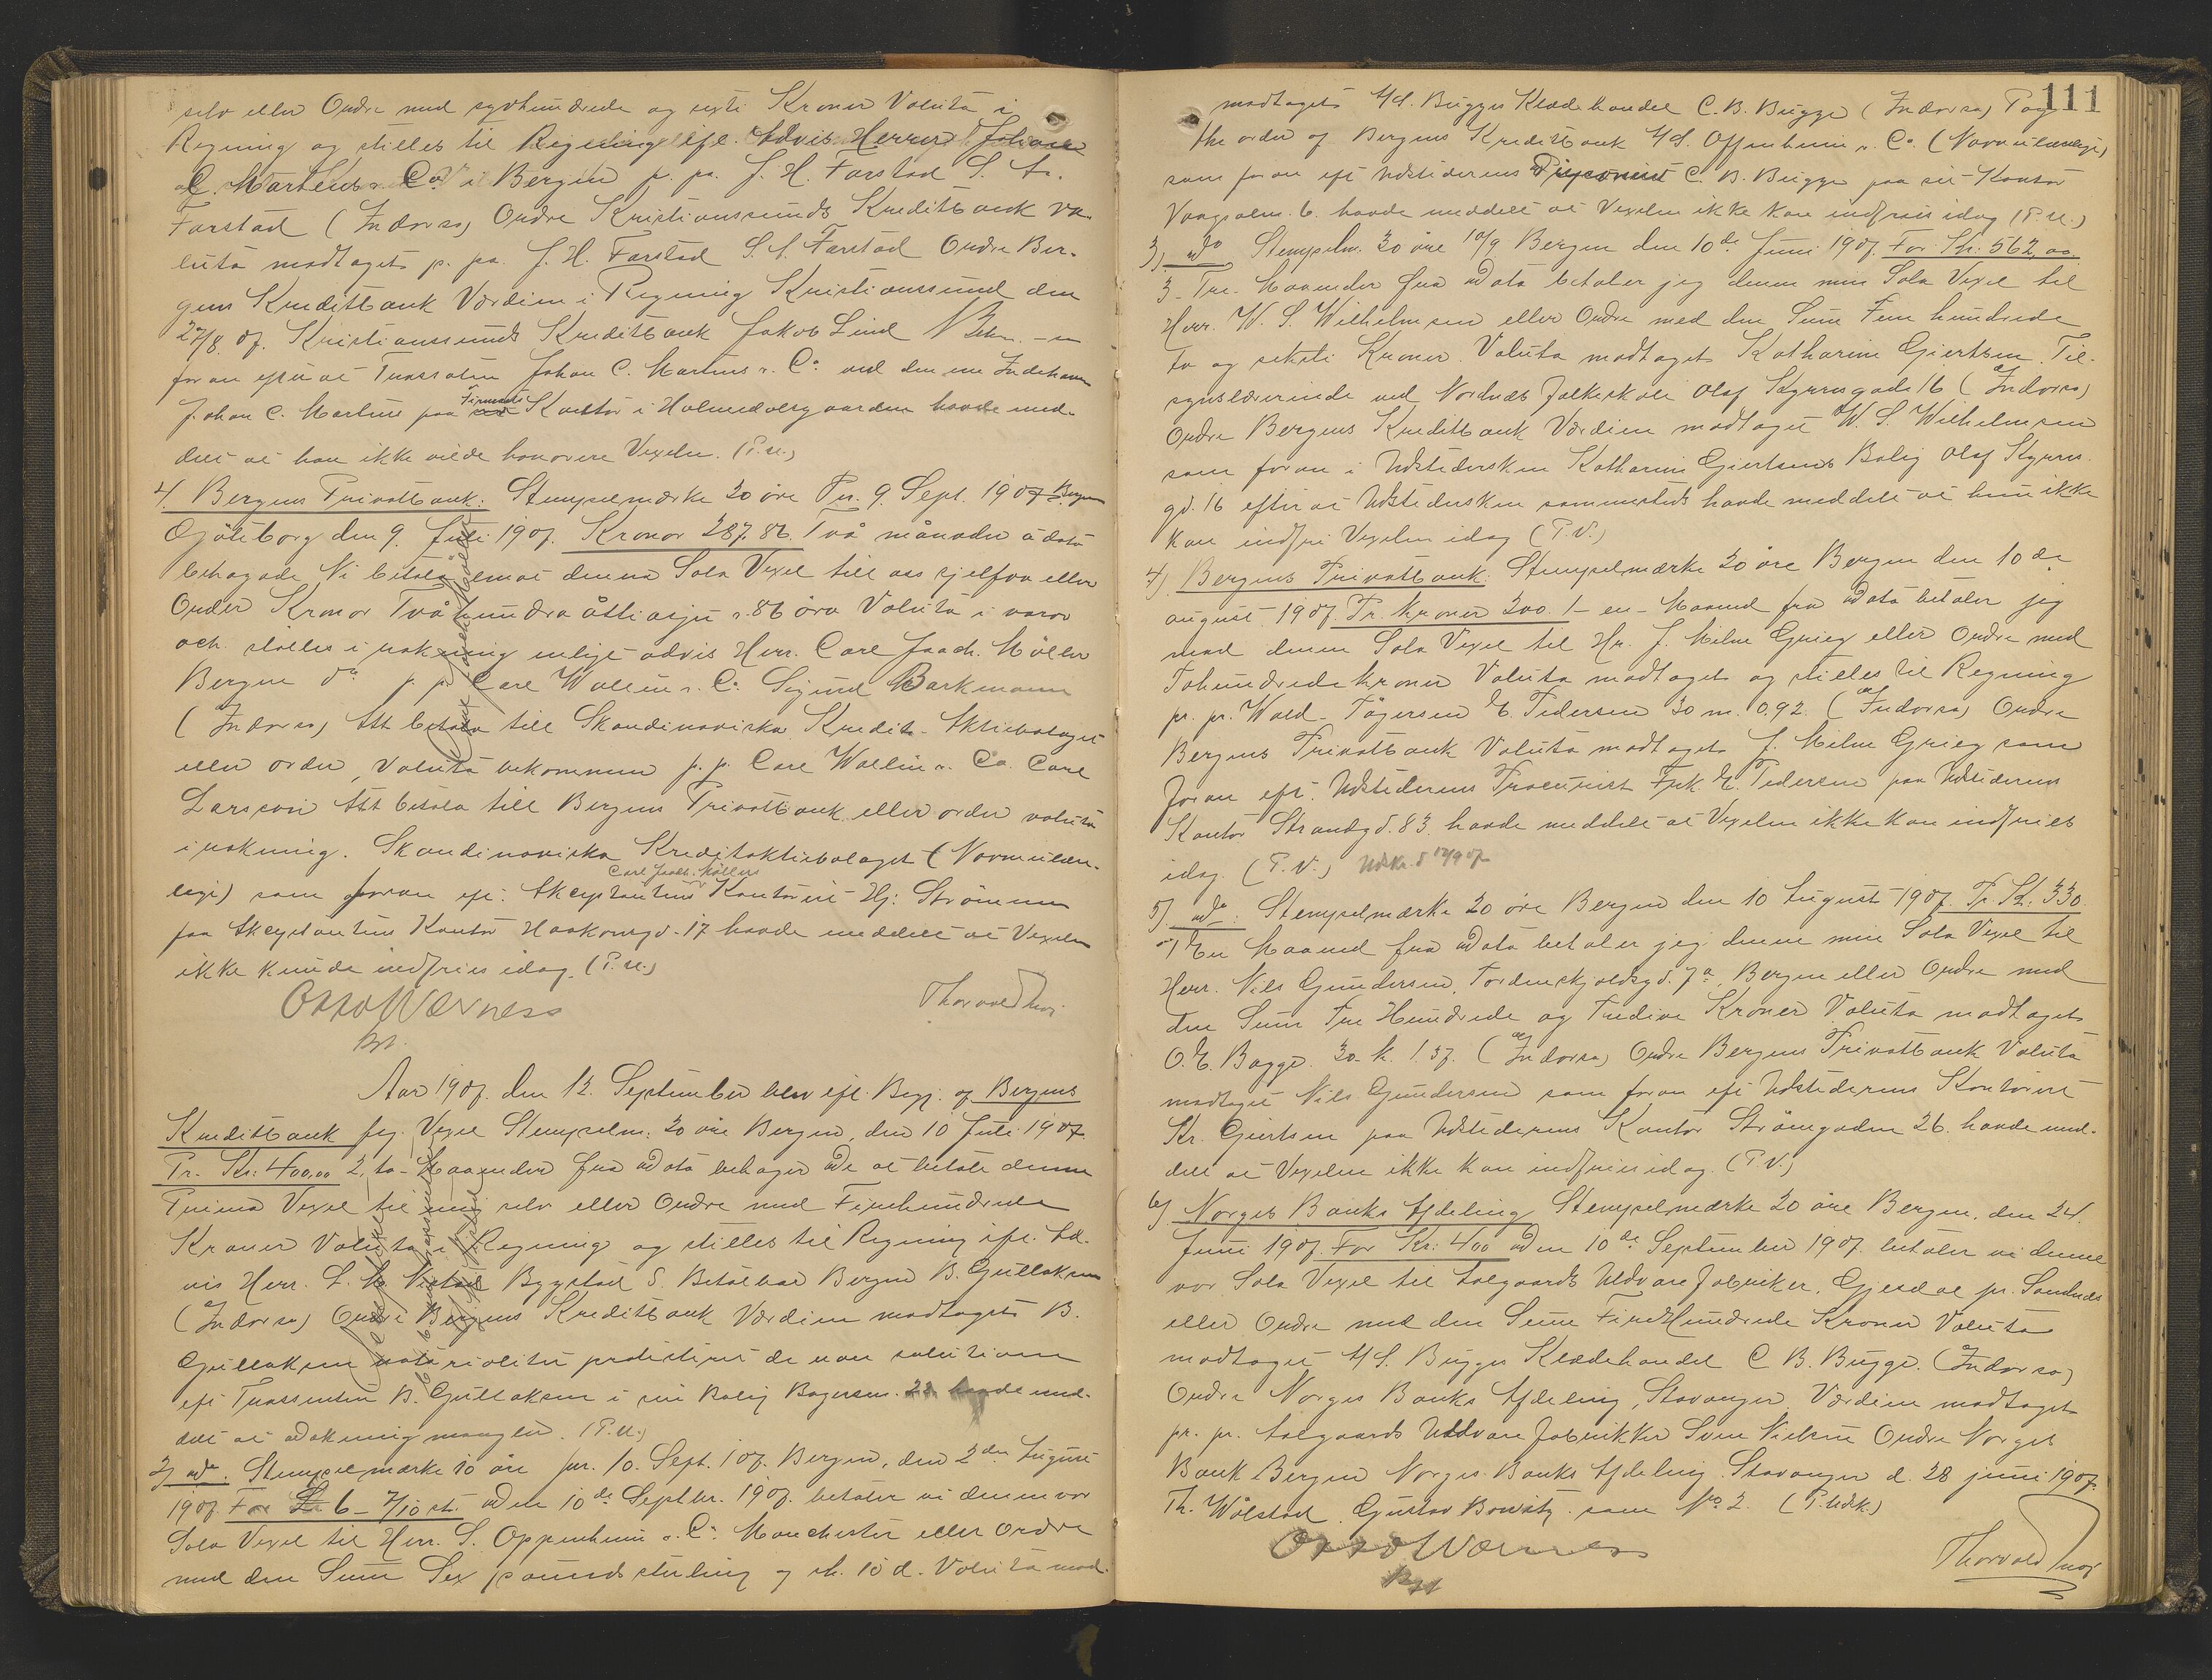 selv eller Ordre med syvhundrede og sexti Kroner Valuta i
Regning og stilles til Regning efl. Advis Herrer Johan
C. Martens & Co i Bergen p. pa. J. H. Farstad S. A.
Farstad (Indorso) Ordre Kristianssunds Kreditbank Va-
luta modtaget p. pa. J. H. Farstad S. A. Farstad Ordre Ber-
gens Kreditbank Værdien i Regning Kristianssund den
27/8 07. Kristianssunds Kreditbank Jakob Lind
foran efter at Trassaten Johan C. Martens & Co ved den ene Indehaver
Johan C. Martens paa Firmaets Kontor i Holmedalsgaarden havde med-
delt at han ikke vilde honorere Vexelen. (P.u.)
4. Bergens Privatbank: Stempelmærke 20 öre Pr. 9 Sept. 1907 Bergen
Göteborg den 9. Juli 1907. Kronor 287.86. Två månader à dato
behagade Ni betala emot denna Sola Vexel till oss sjelfva eller
Order Kronor Tvåhundra åttiosju & 86 öre Valuta i varor
och ställes i räkning enligt advis Herr. Carl Joach. Möller
Bergen p. p. Carl Wallin & Co Sigurd Barkmann
(Indorso) Att betala till Skandinaviska Kredit-Aktiebolaget
eller order, valuta bekommen p. p. Carl Wallin & Co. Carl
Larsson Att betala till Bergens Privatbank eller order valuta
i räkning. Skandinaviska Kreditaktiebolaget (Navn ulæse-
Carl Joach. Möllers
ligt) som foran eft. Akceptantens Kontorist Hj: Strömmen
paa Akceptantens Kontor Haakonsgd. 17 havde meddelt at Vexelen
ikke kunde indfries idag. (P.u.)
Otto Værness
Bft.
Thorvald Thor
Aar 1907. den 12. September blev efl. Begj. af Bergens
Kreditbank flg. Vexel Stempelm: 20 öre Bergen, den 10 Juli 1907
Pr. Kr: 400,00 2, to Maaneder fra dato behager De at betale denne
Prima Vexel til mig selv eller Ordre med Firehundrede
Kroner Valuta i Regning og stilles til Regning ifl. Ad-
vis Herr. L. M. Bygstad S. Betalbar Bergen B. Gullaksen
(Indorso) Ordre Bergens Kreditbank Værdien modtaget B.
Gullaksen notarialiter protesteret de non solutione
eft Trassenten B. Gullaksen i sin Bolig 22 havde med-
delt at dækning mangler. (P.u.)
2) do. Stempelmærke 10 öre pr. 10. Sept. 07. Bergen, den 2den August
1907. For £ 6 - 7/10 st. den 10de Septbr. 1907. betaler vi denne vor
Sola Vexel til Herr. S. Oppenheim & Co Manchester eller Ordre
med den Sum Sex pounds sterling 7 sh. 10 d. Valuta mod-
111
modtaget A/S. Bugges Klædehandel C. B. Bugge (Indorso) Pay
the order of Bergens Kreditbank A/S. Oppenheim & Co. (Navn ulæseligt)
som foran eft Udstederens Disponent C. B. Bugge paa sit Kontor
Vaagsalm. 6. havde meddelt at Vexelen ikke kan indfries idag (P.u.)
3) do Stempelm. 30 öre 10/9 Bergen den 10de Juni 1907. For Kr. 562,00
3 - Tre - Maaneder fra dato betaler jeg denne min Sola Vexel til
Herr. W. S. Wilhelmsen eller Ordre med den Sum Fem hundrede
to og seksti Kroner. Valuta modtaget Katharine Giertsen. Til-
synslærerinde ved Nordnæs Folkeskole Olaf Kyrresgade 16 (Indorso)
Ordre Bergens Kreditbank Værdien modtaget W. S. Wilhelmsen
som foran i Udstedersken Katharine Giertsens Bolig Olaf Kyrres
gd. 16 efter at Udstedersken sammesteds havde meddelt at hun ikke
kan indfri Vexelen idag (P.V.)
4) Bergens Privatbank: Stempelmærke 20 öre Bergen den 10 de
august 1907. Pr. Kroner 200. 1 - en - Maaned fra dato betaler jeg
mod denne Sola Vexel til Hr. J. Milne Grieg eller Ordre med
Tohundrede Kroner Valuta modtaget og stilles til Regning
pr. pr. Wald. Tögersen E. Pedersen 30 m. 0,92. (Indorso) Ordre
Bergens Privatbank Valuta modtaget J. Milne Grieg som
foran eft. Udstederens Procurist Frk E. Pedersen paa Udstederens
Kontor Strandgd. 83. havde meddelt at Vexelen ikke kan indfries
idag. (P.V.) Udk. d 12/9 07
5) do: Stempelmærke 20 öre Bergen den 10 August 1907. Pr Kr. 330.
1 En Maaned fra dato betaler jeg denne min Sola Vexel til
Herr. Nils Gundersen, Tordenskjoldsgd. 7a, Bergen eller Ordre med
den Sum Tre Hundrede og Tredive Kroner Valuta modtaget
O. E. Bagge. 30. k. 1.37. (Indorso) Ordre Bergens Privatbank Valuta
modtaget Nils Gundersen som foran eft Udstederens Kontorist
Kr. Giertsen paa Udstederens Kontor Strömgaden 26. havde med-
delt at Vexelen ikke kan indfries idag. (P.V.)
6) Norges Banks Afdeling Stempelmærke 20 öre Bergen, den 24.
Juni 1907. For Kr: 400 den 10de September 1907. betaler vi denne
vor Sola Vexel til Aalgaards Uldvarefabriker, Gjesdal pr. Sandnæs
eller Ordre med den Sum Fire Hundrede Kroner Valuta
modtaget A/S. Bugges Klædehandel C B. Bugge. (Indorso)
Ordre Norges Banks Afdeling, Stavanger, Værdien modtaget
pr. pr. Aalgaards Uldvarefabrikker Sven Nielsen Ordre Norges
Bank Bergen Norges Banks Afdeling Stavanger d. 28 juni 1907.
Th. Wölstad Gustav som No 2. (P. Udk.)
Otto Værness
Bft
Thorvald Thor